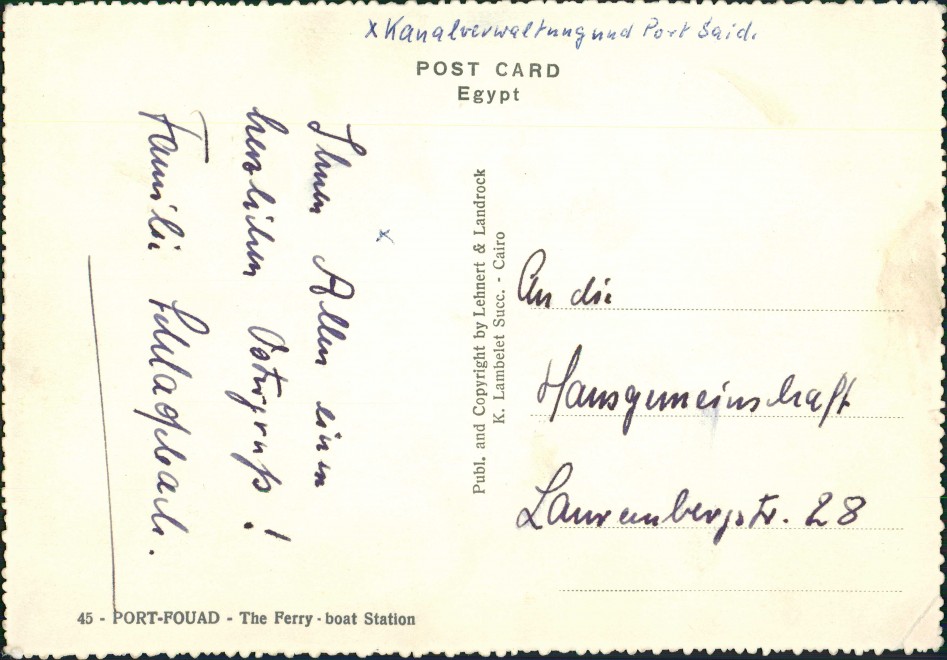 x Kanalverwaltung und Port Said.
POST CARD
Egypt
Ihnen Allen einen
herzlichen Ostergruß!
Familie
Publ. and Copyright by Lehnert & Landrock
K. Lambelet Succ. - Cairo
An die
Hausgemeinschaft
28
45 - PORT-FOUAD - The Ferry-boat Station